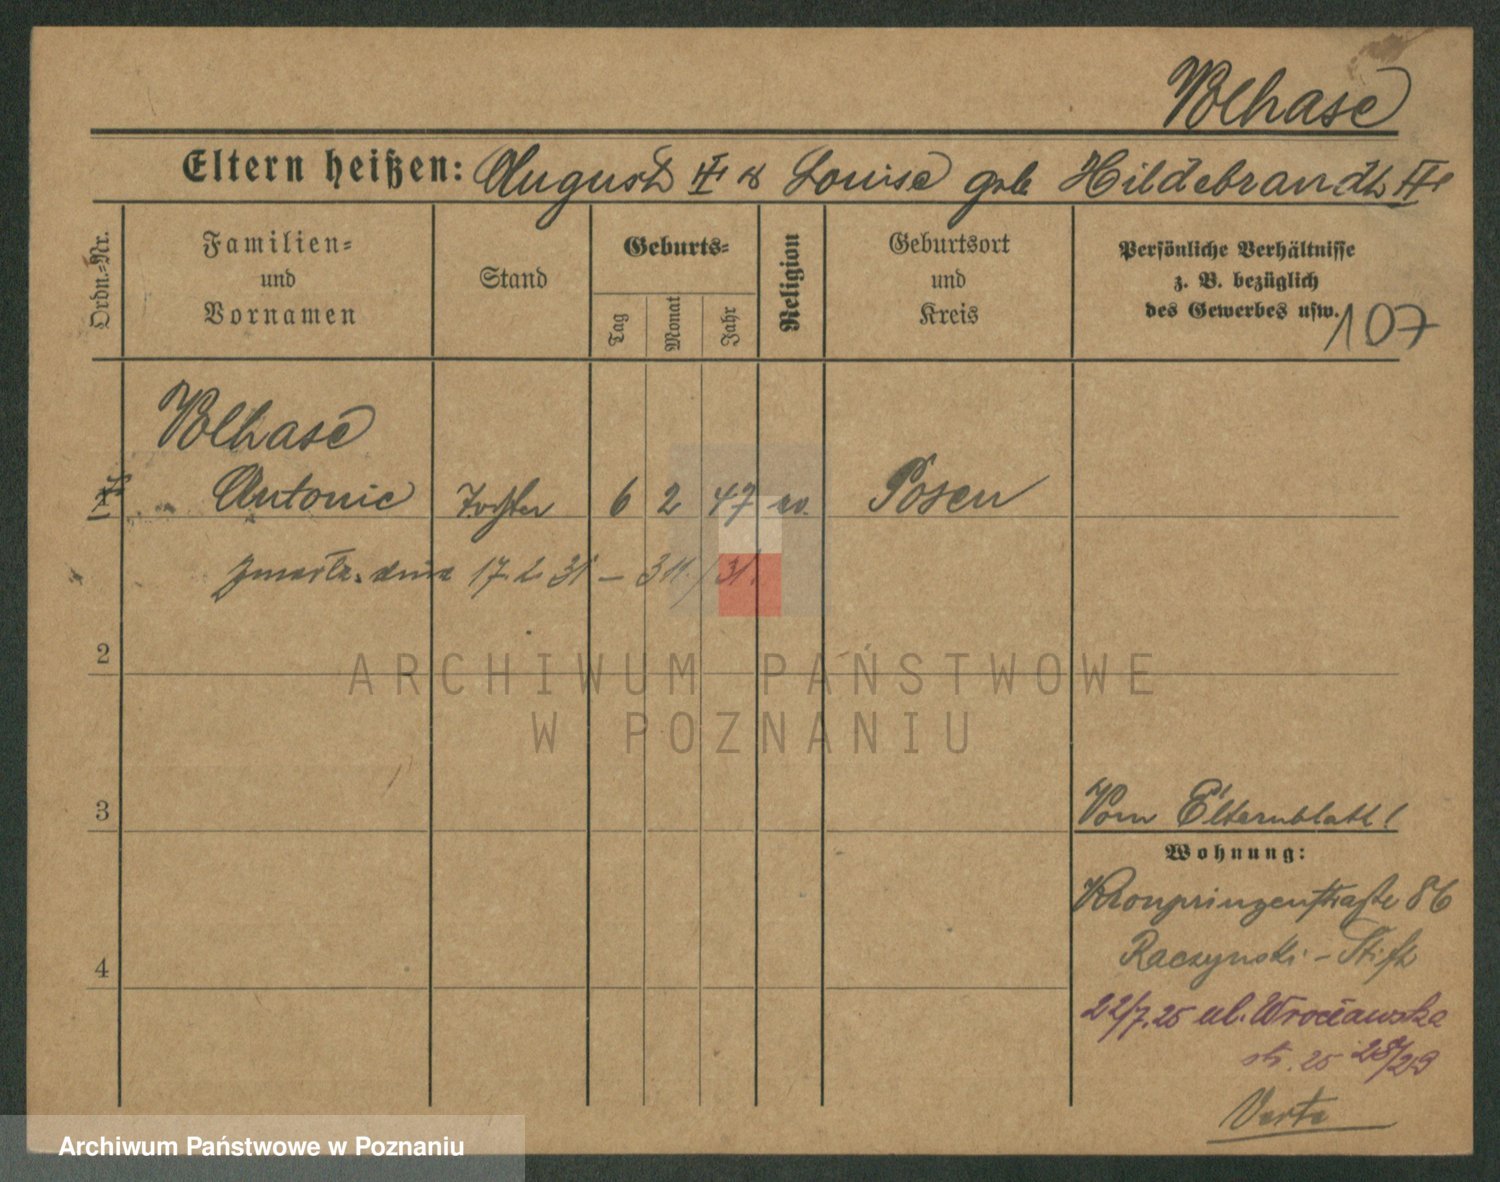 Volhase
Eltern heißen: August u Louise geb Hildebrandt
Ordn.-Nr.
Familien-
und
Vornamen
Stand
Geburts-
Tag
Monat
Jahr
Religion
Geburtsort
und
Kreis
Persönliche Verhältnisse
z. B. bezüglich
des Gewerbes usw.
107
Volhase
Antonie Tochter 6 2 47 ev. Posen
zmarła dnia 17.2.31 – 311/31.
2
ARCHIWUM PAŃSTWOWE
W POZNANIU
3
Vom Elternblatt!
Wohnung:
Kronprinzenstraße 86
4
Raczynski-Stift
22/7.25 ul. Wrocławska
28/29
Verte
Archiwum Państwowe w Poznaniu